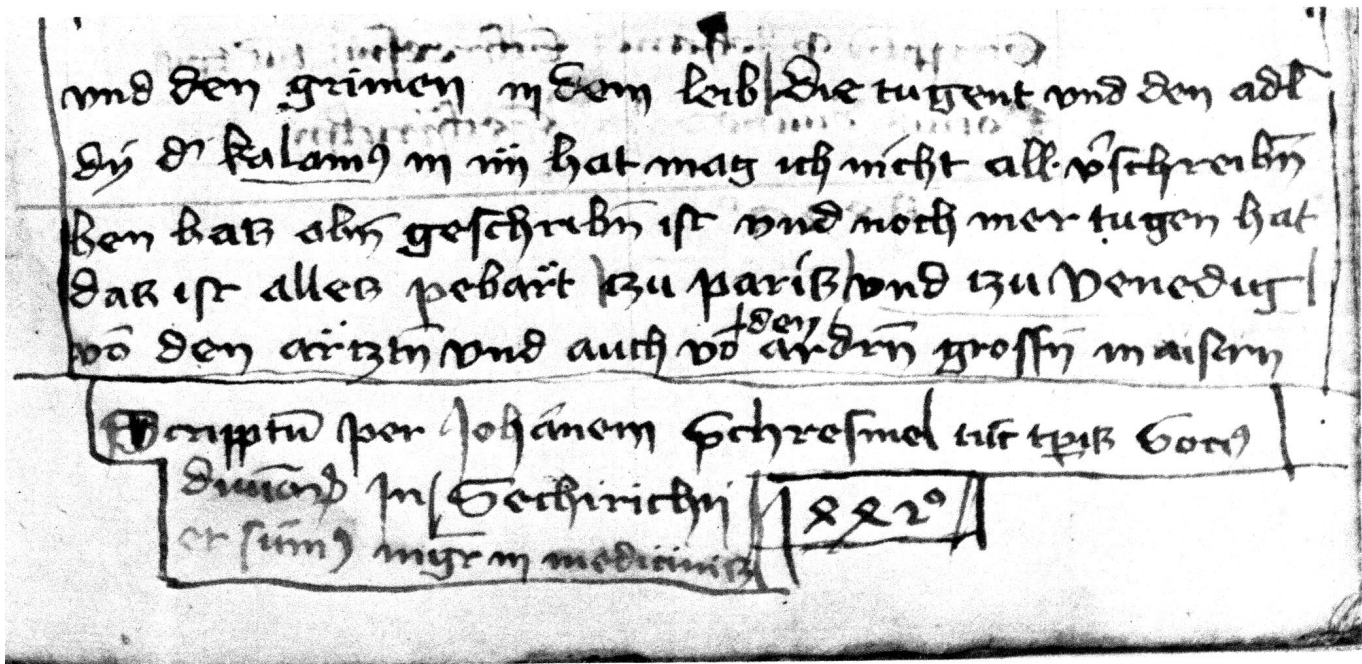 vnd den grimen̄ in dem leib | die tugent vnd den adl̄
dÿ d' kalamꝰ in im hat mag ich nicht all v̄schreibn̄
ben hatz obn̄ geschribn̄ ist vnd noch mer tugen hat
datz ist alletz pebärt | tzu paritz | vnd tzu Venedig |
vō den ärtztn̄ vnd auch vō den andrn̄ grossn̄ maistrn
Scripptū per Johānem Schresmel tūc tꝑis
In Sechirichn
et sūmꝯ mgr̄ in medicinis